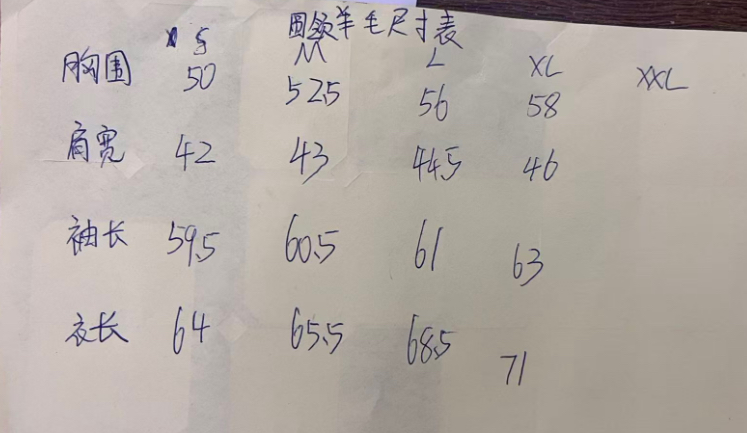 围领羊毛尺寸表
S M L XL XXL
胸围 50 52.5 56 58
肩宽 42 43 44.5 46
袖长 59.5 60.5 61 63
衣长 64 65.5 68.5 71